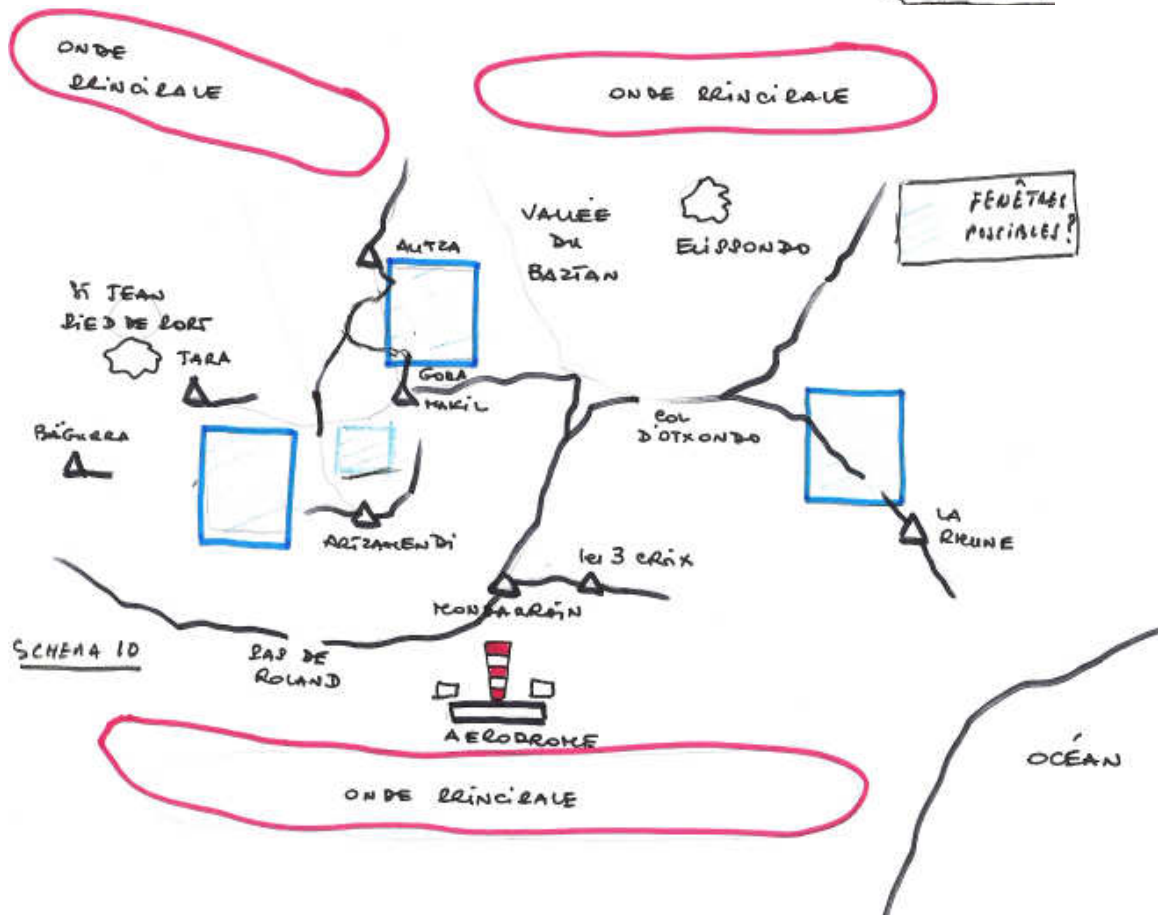 ONDE
PRINCIPALE
ONDE PRINCIPALE
FENÊTRES
POSSIBLES?
VALLÉE
DU
BAZTAN
ELISSONDO
AUTZA
ST JEAN
PIED DE PORT
JARA
GORA
MAKIL
BAÏGURRA
COL
D'OTXONDO
LA
RHUNE
ARTZAMENDI
les 3 CROIX
MONDARRAIN
SCHEMA 10
PAS DE
ROLAND
AERODROME
OCÉAN
ONDE PRINCIPALE